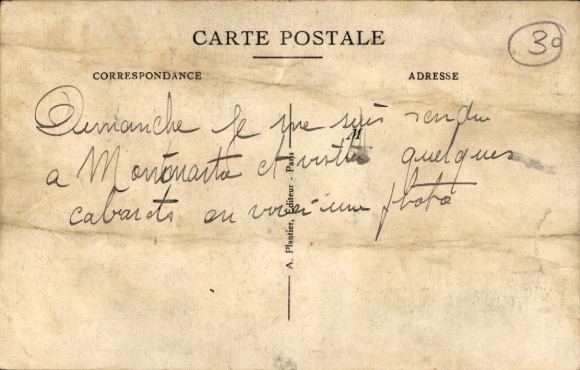 CARTE POSTALE
30
CORRESPONDANCE
ADRESSE
M
Dimanche je me suis rendu
a Montmartre et visité quelques
cabarets en voici une photo
A. Plantier, Editeur - Paris